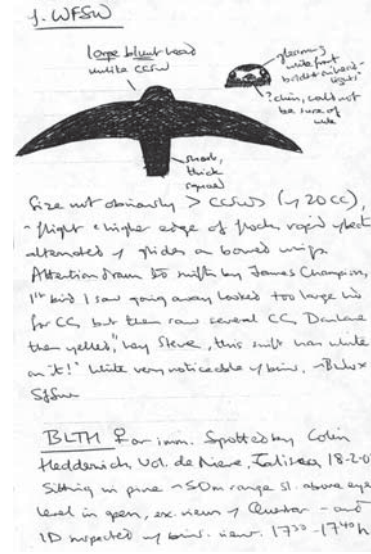 1. WFSW
large blunt head
unlike CCSW
gleaming
white front
bold &
lights
? chin, could not
be sure of
white
short,
thick
squared
Size not obviously > CCSWs (~ 20 CC),
flight higher edge of flock, rapid
alternated glides on bowed wings.
Attention drawn to swifts by James Champion,
1st bird I saw going away looked too large
for CC, but then saw several CC,
then yelled, "hey Steve, this swift has white
on it!" White very noticeable bins,
BLTH ♀ or imm. Spotted by Colin
Hedderich, Vol. de Nieve, Jalisco, 18-2-0
Sitting in pine ~50m range sl. above eye
level in open, ex. view Questar - and
ID suspected bins. view. 1730 - 1740 h